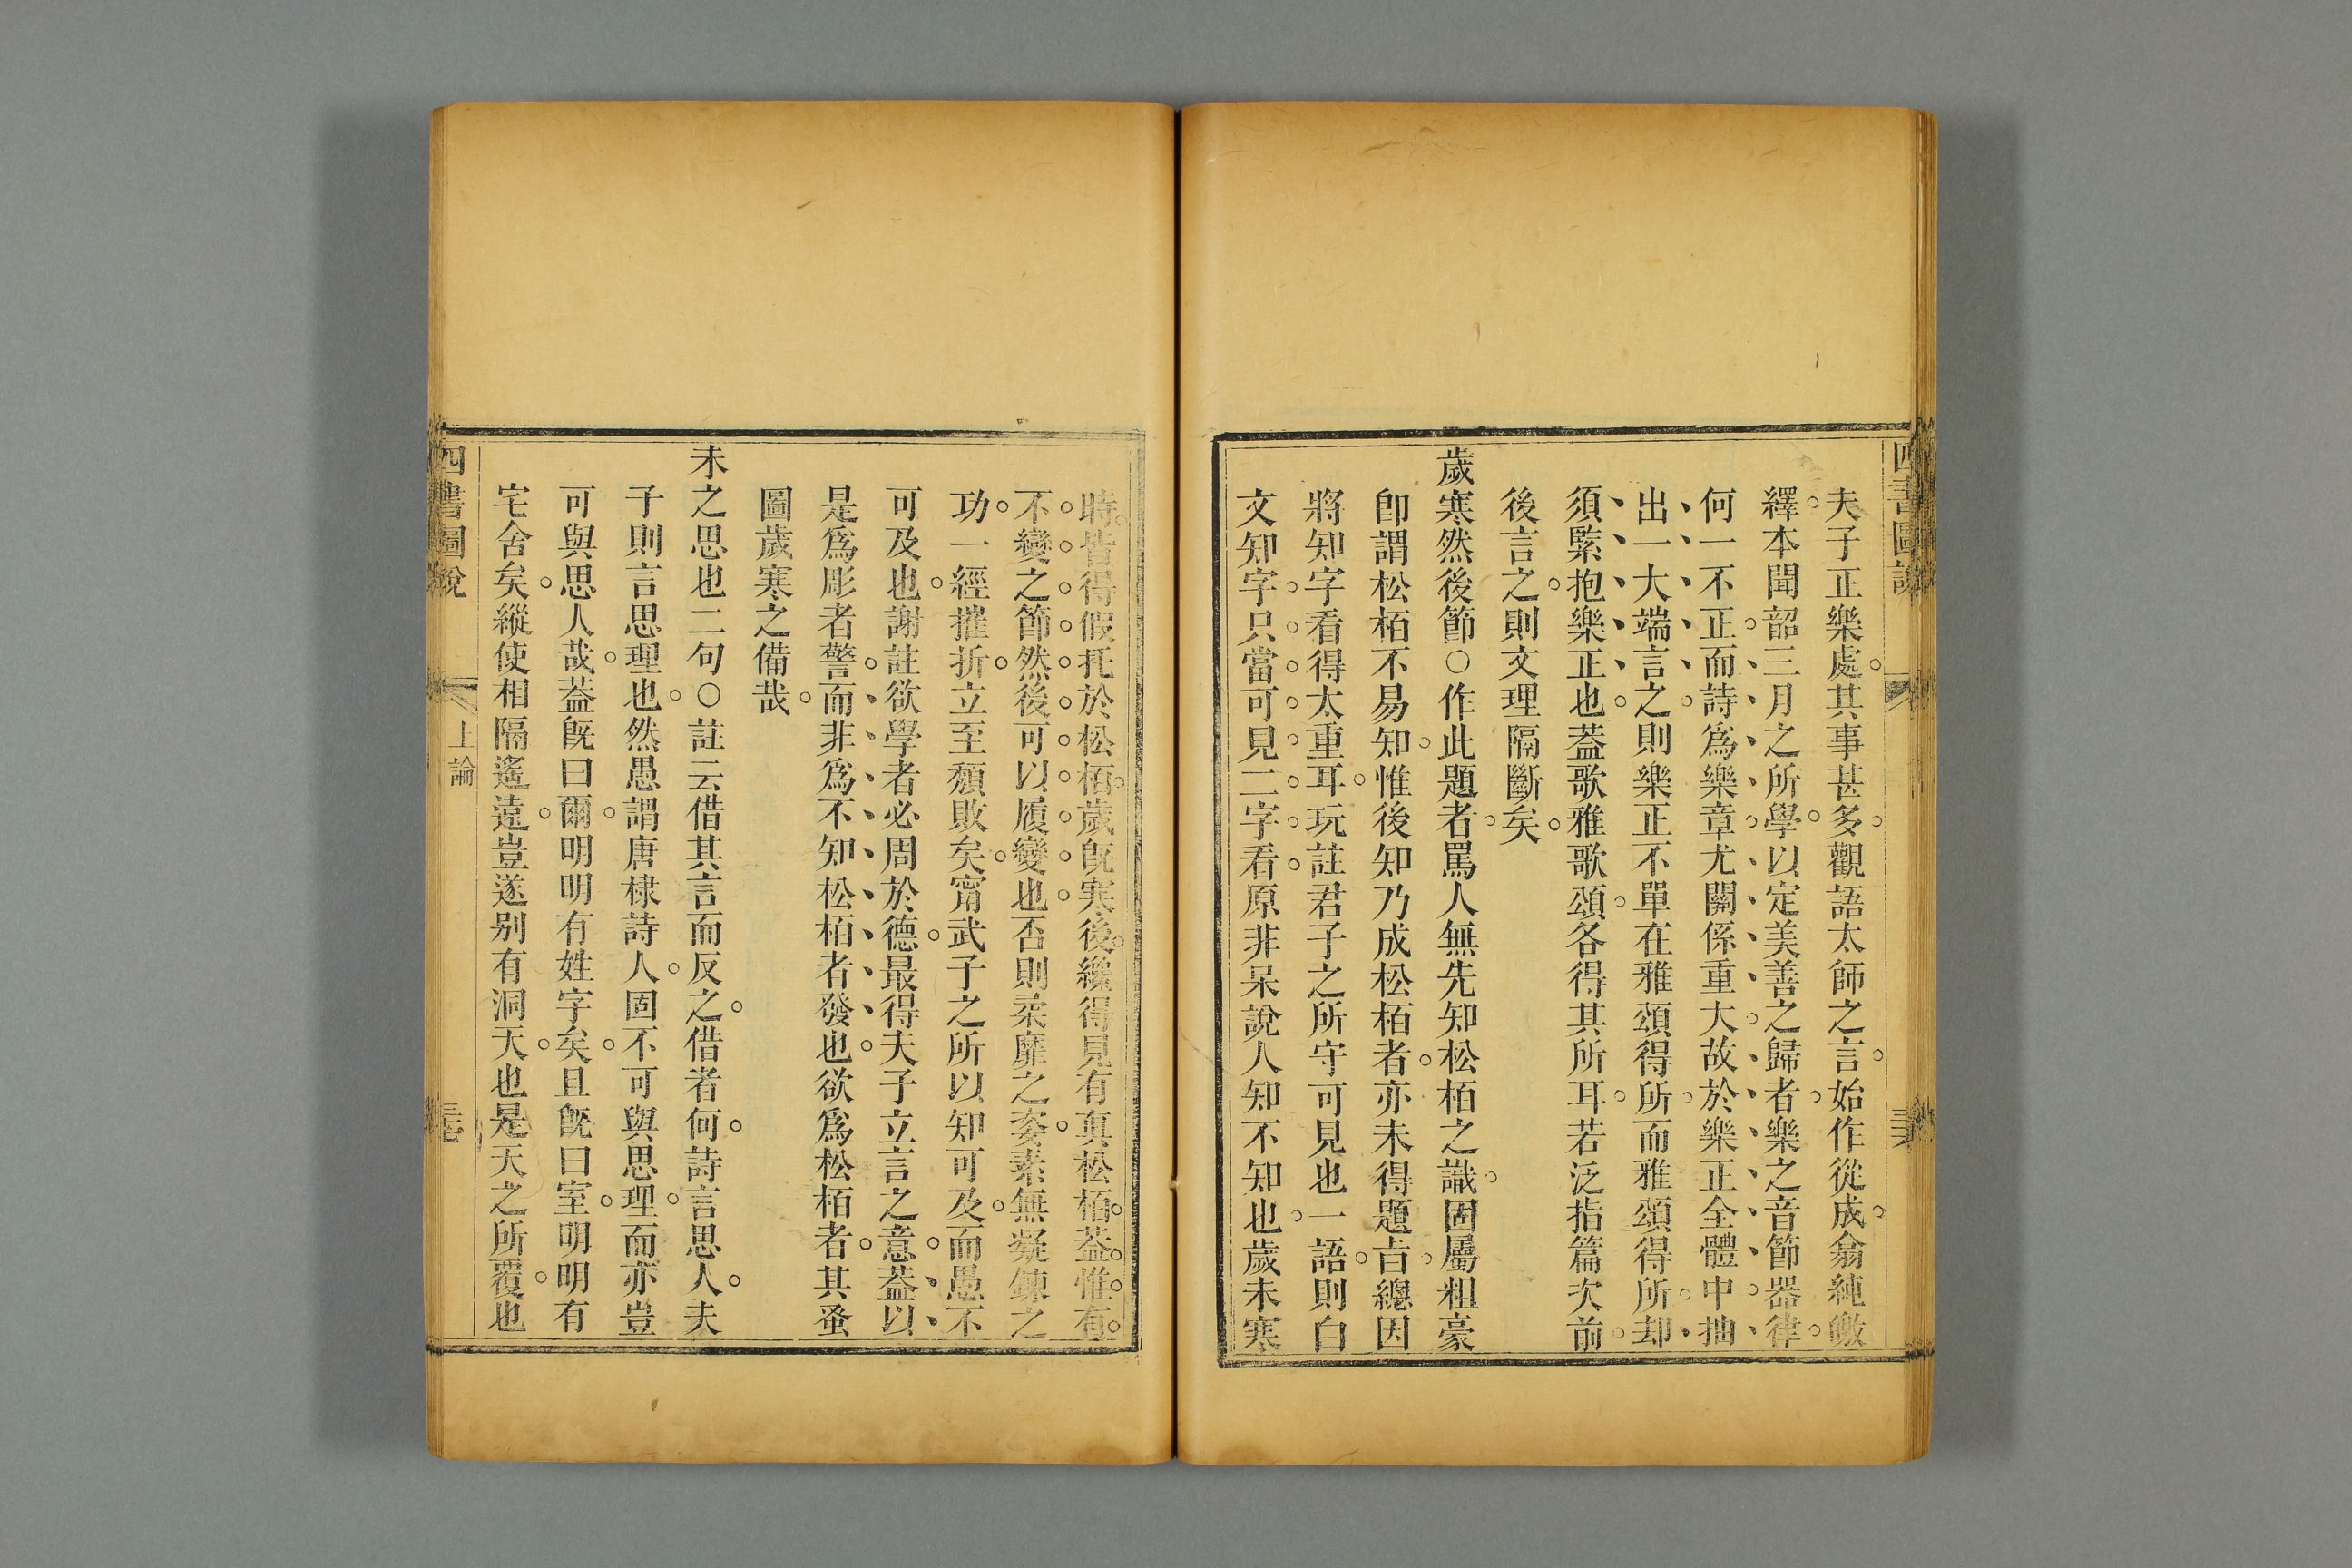 四書圖說
夫子正樂處其事甚多觀語太師之言始作從成翕純皦
繹本聞韶三月之所學以定美善之歸者樂之音節器律
何一不正而詩爲樂章尤關係重大故於樂正全體中抽
出一大端言之則樂正不單在雅頌得所而雅頌得所却
須緊抱樂正也葢歌雅歌頌各得其所耳若泛指篇次前
後言之則文理隔斷矣
歲寒然後節○作此題者罵人無先知松栢之識固屬粗豪
卽謂松栢不易知惟後知乃成松栢者亦未得題㫖總因
將知字看得太重耳玩註君子之所守可見也一語則白
文知字只當可見二字看原非呆說人知不知也歲未寒
時皆得假托於松栢歲旣寒後纔得見有眞松栢葢惟有
不變之節然後可以履變也否則柔靡之姿素無凝鍊之
功一經摧折立至頽敗矣甯武子之所以知可及而愚不
可及也謝註欲學者必周於德最得夫子立言之意葢以
是爲彫者警而非爲不知松栢者發也欲爲松栢者其蚤
圖歲寒之備哉
未之思也二句○註云借其言而反之借者何詩言思人夫
子則言思理也然愚謂唐棣詩人固不可與思理而亦豈
可與思人哉葢旣曰爾明明有姓字矣且旣曰室明明有
宅舍矣縱使相隔遙遠豈遂别有洞天也是天之所覆也
四書圖說
上論